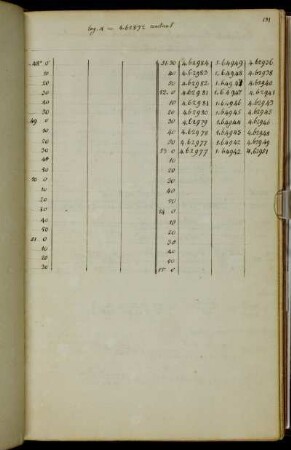 131
log. a = 4.62972
48 0 51 30 4.62984 1.64949 4.62936
10 40 4.62983 1.64948 4.62938
20 50 4.62982 1.64948 4.62940
30 52. 0 4.62981 1.64947 4.62941
40 10 4.62981 1.64946 4.62943
50 20 4.62980 1.64945 4.62945
49 0 30 4.62979 1.64944 4.62946
10 40 4.62978 1.64943 4.62948
20 50 4.62977 1.64942 4.62949
30 53. 0 4.62977 1.64942 4.62951
40 10
50 20
50 0 30
10 40
20 50
30 54. 0
40 10
50 20
51. 0 30
10 40
20 50
30 55 0